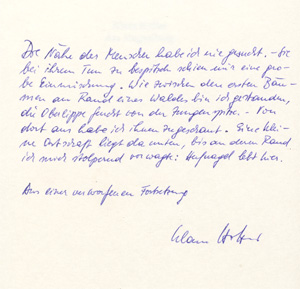 Die Nähe der Menschen habe ich nie gesucht. - Sie
bei ihrem Tun zu bespitzeln schien mir eine gro-
be Einmischung. Wie zwischen den ersten Bäu-
men am Rand eines Waldes bin ich gestanden,
die Oberlippe feucht von der Zungenspitze. - Von
dort aus habe ich ihnen zugeschaut. Eine klei-
ne Ortschaft liegt da unten, bis an deren Rand
ich mich stolpernd vorwagte: Hufnagel lebt hier.
Aus einer verworfenen Fortsetzung
Klaus